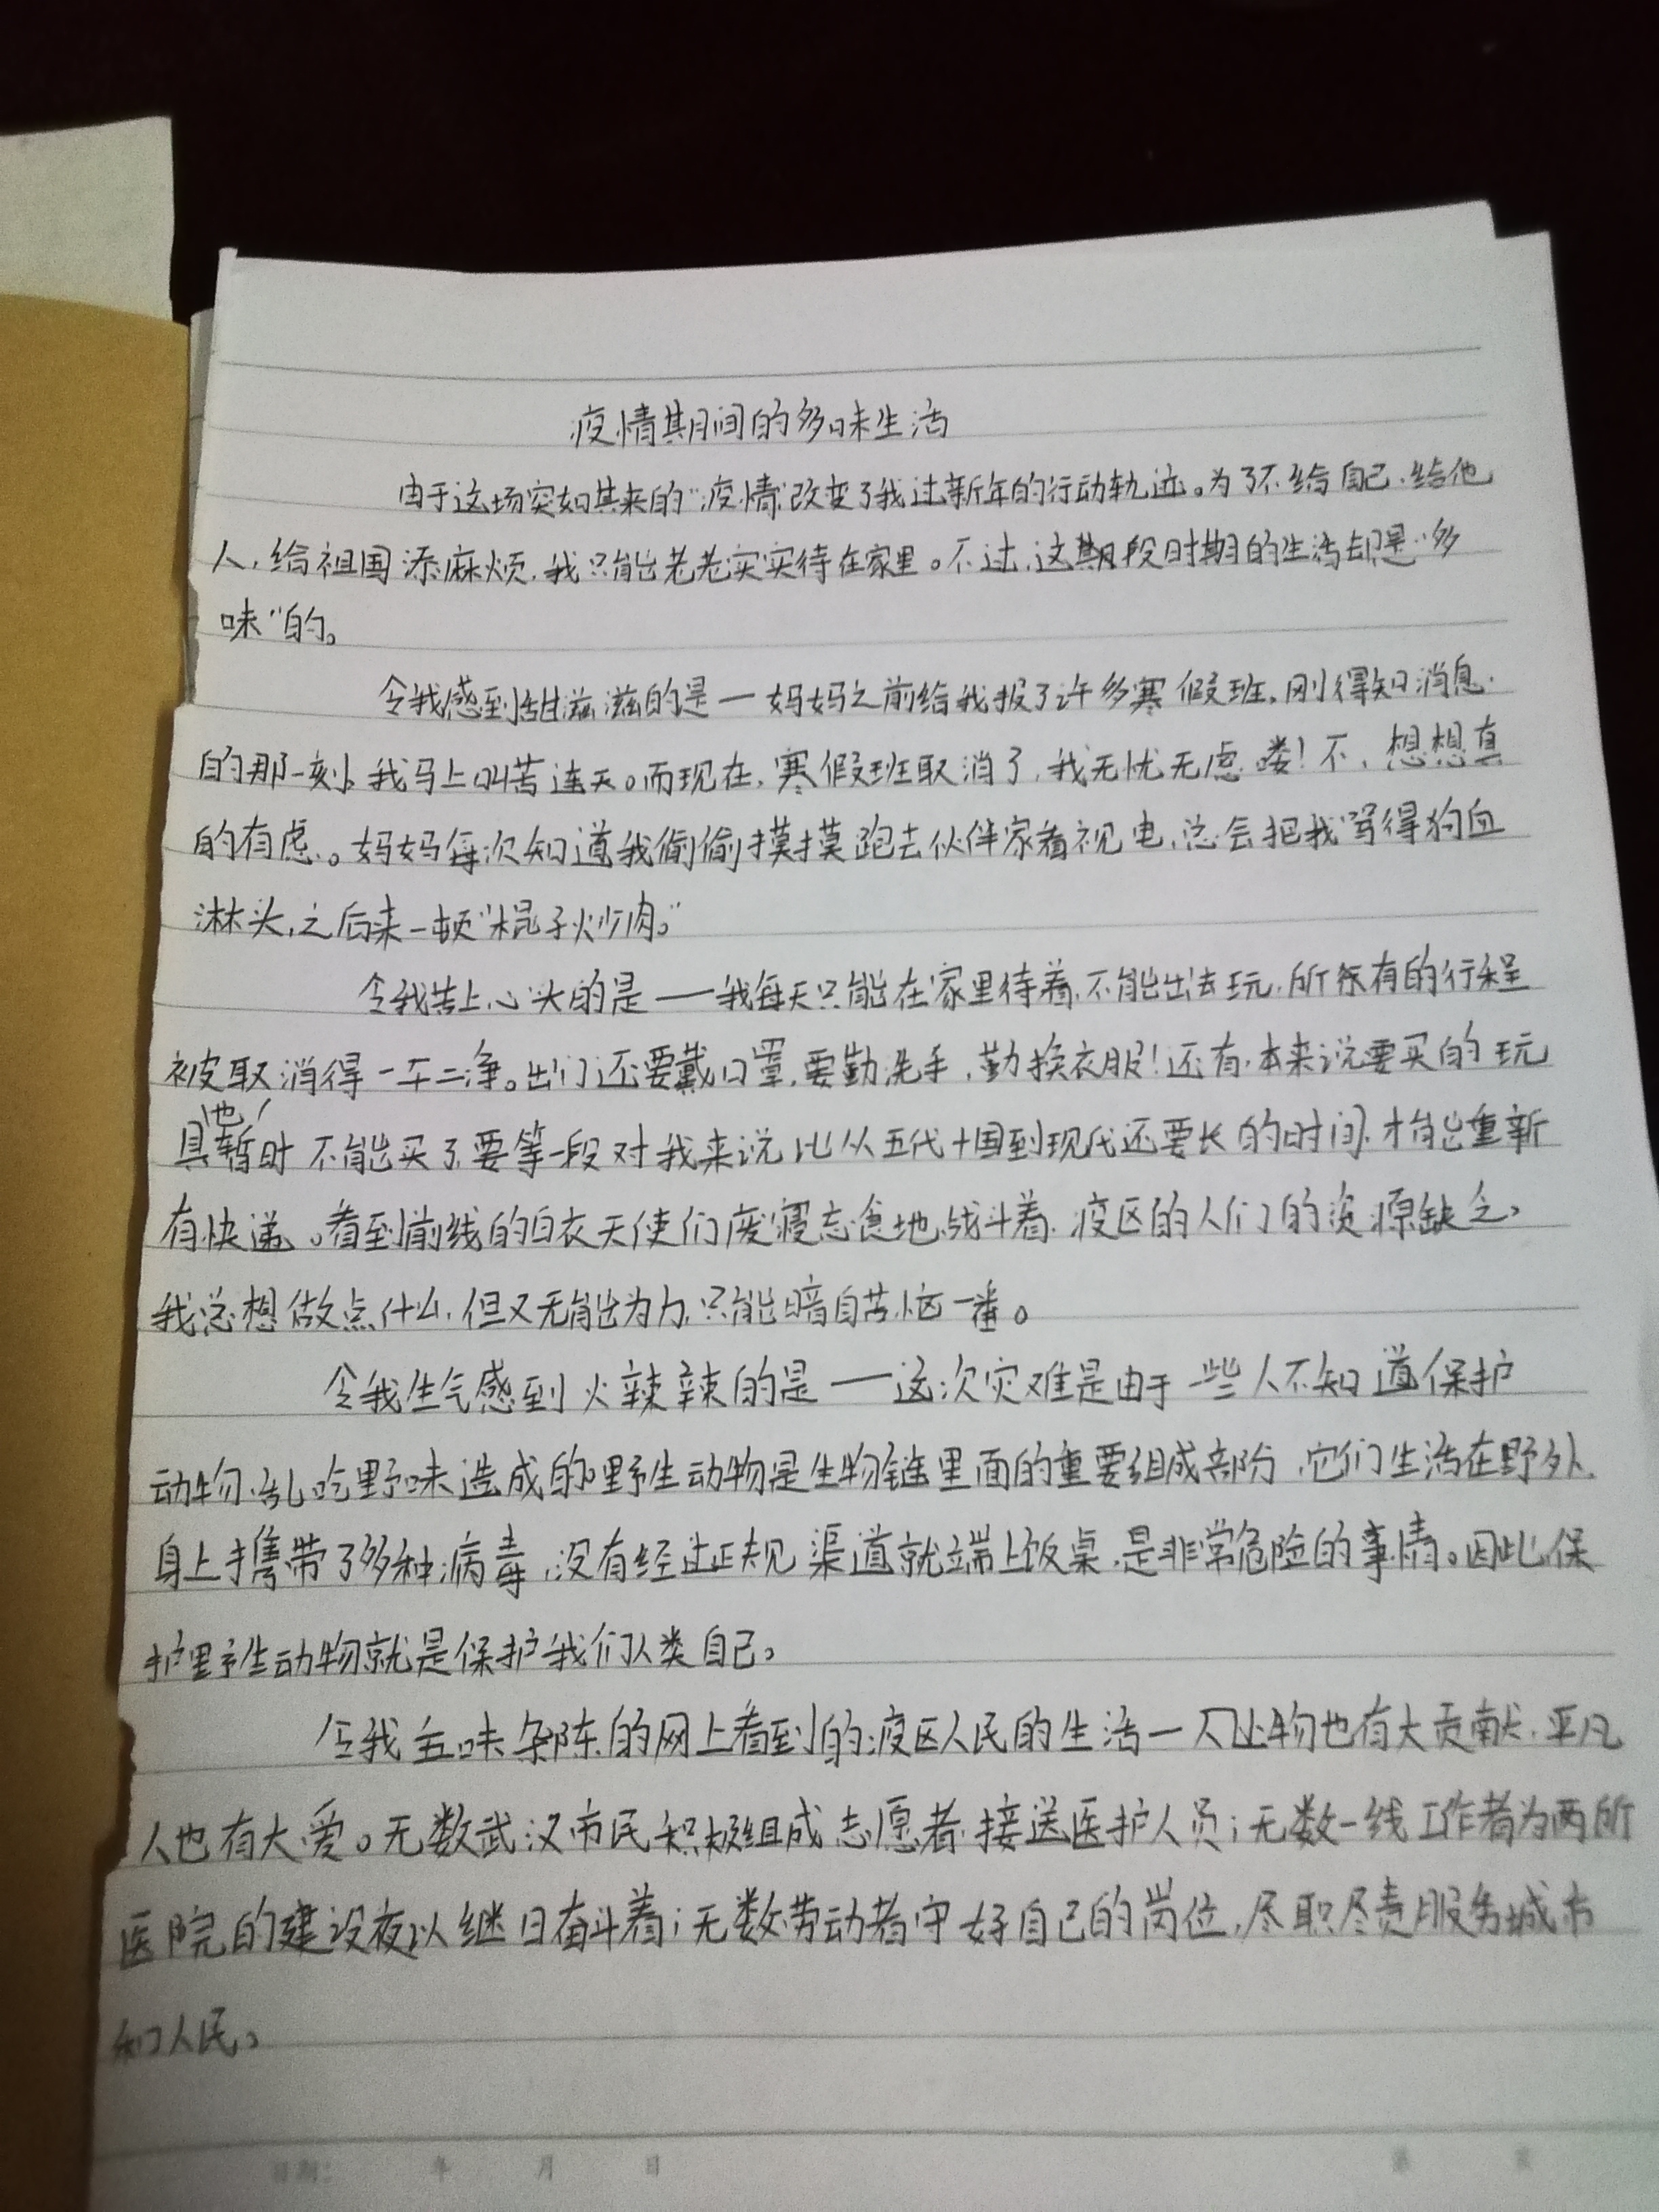 疫情期间的多味生活
由于这场突如其来的“疫情”改变了我过新年的行动轨迹。为了不给自己,给他
人,给祖国添麻烦,我只能老老实实待在家里。不过,这段时期的生活却是“多
味”的。
令我感到甜滋滋的是—妈妈之前给我报了许多寒假班,刚得知消息
的那一刻,我马上叫苦连天。而现在,寒假班取消了,我无忧无虑喽!不,想想真
的有虑。妈妈每次知道我偷偷摸摸跑去伙伴家看视电,总会把我骂得狗血
淋头,之后来一顿“棍子炒肉。”
令我苦上心头的是——我每天只能在家里待着,不能出去玩,所有的行程
被取消得一干二净。出门还要戴口罩,要勤洗手,勤换衣服!还有,本来说要买的玩
具也暂时不能买了,要等一段对我来说比从五代十国到现代还要长的时间,才能重新
有快递。看到前线的白衣天使们废寝忘食地战斗着,疫区的人们的资源缺乏,
我总想做点什么,但又无能为力,只能暗自苦恼一番。
令我生气感到火辣辣的是——这次灾难是由于一些人不知道保护
动物,乱吃野味造成的。野生动物是生物链里面的重要组成部份,它们生活在野外,
身上携带了多种病毒,没有经过正规渠道就端上饭桌,是非常危险的事情。因此,保
护野生动物就是保护我们人类自己。
令我五味杂陈的网上看到的疫区人民的生活—小人物也有大贡献,平凡
人也有大爱。无数武汉市民积极组成志愿者,接送医护人员;无数一线工作者为两所
医院的建设夜以继日奋斗着;无数劳动者守好自己的岗位,尽职尽责服务城市
和人民。
日期: 年 月 日